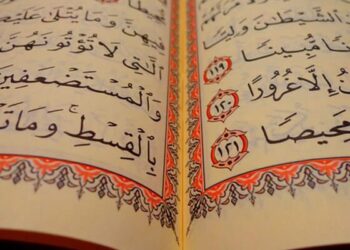 الشَّيْطَٰنَ وَلِيًّا
نًا مُّبِينًا ١١٩
نُ إِلَّا غُرُورًا ١٢٠
مَحِيصًا ١٢١
فِيهِنَّ وَمَا يُتْلَىٰ عَلَيْكُ
الَّٰتِي لَا تُؤْتُونَهُنَّ
وَالْمُسْتَضْعَفِينَ
بِالْقِسْطِ ۚ وَمَا تَ